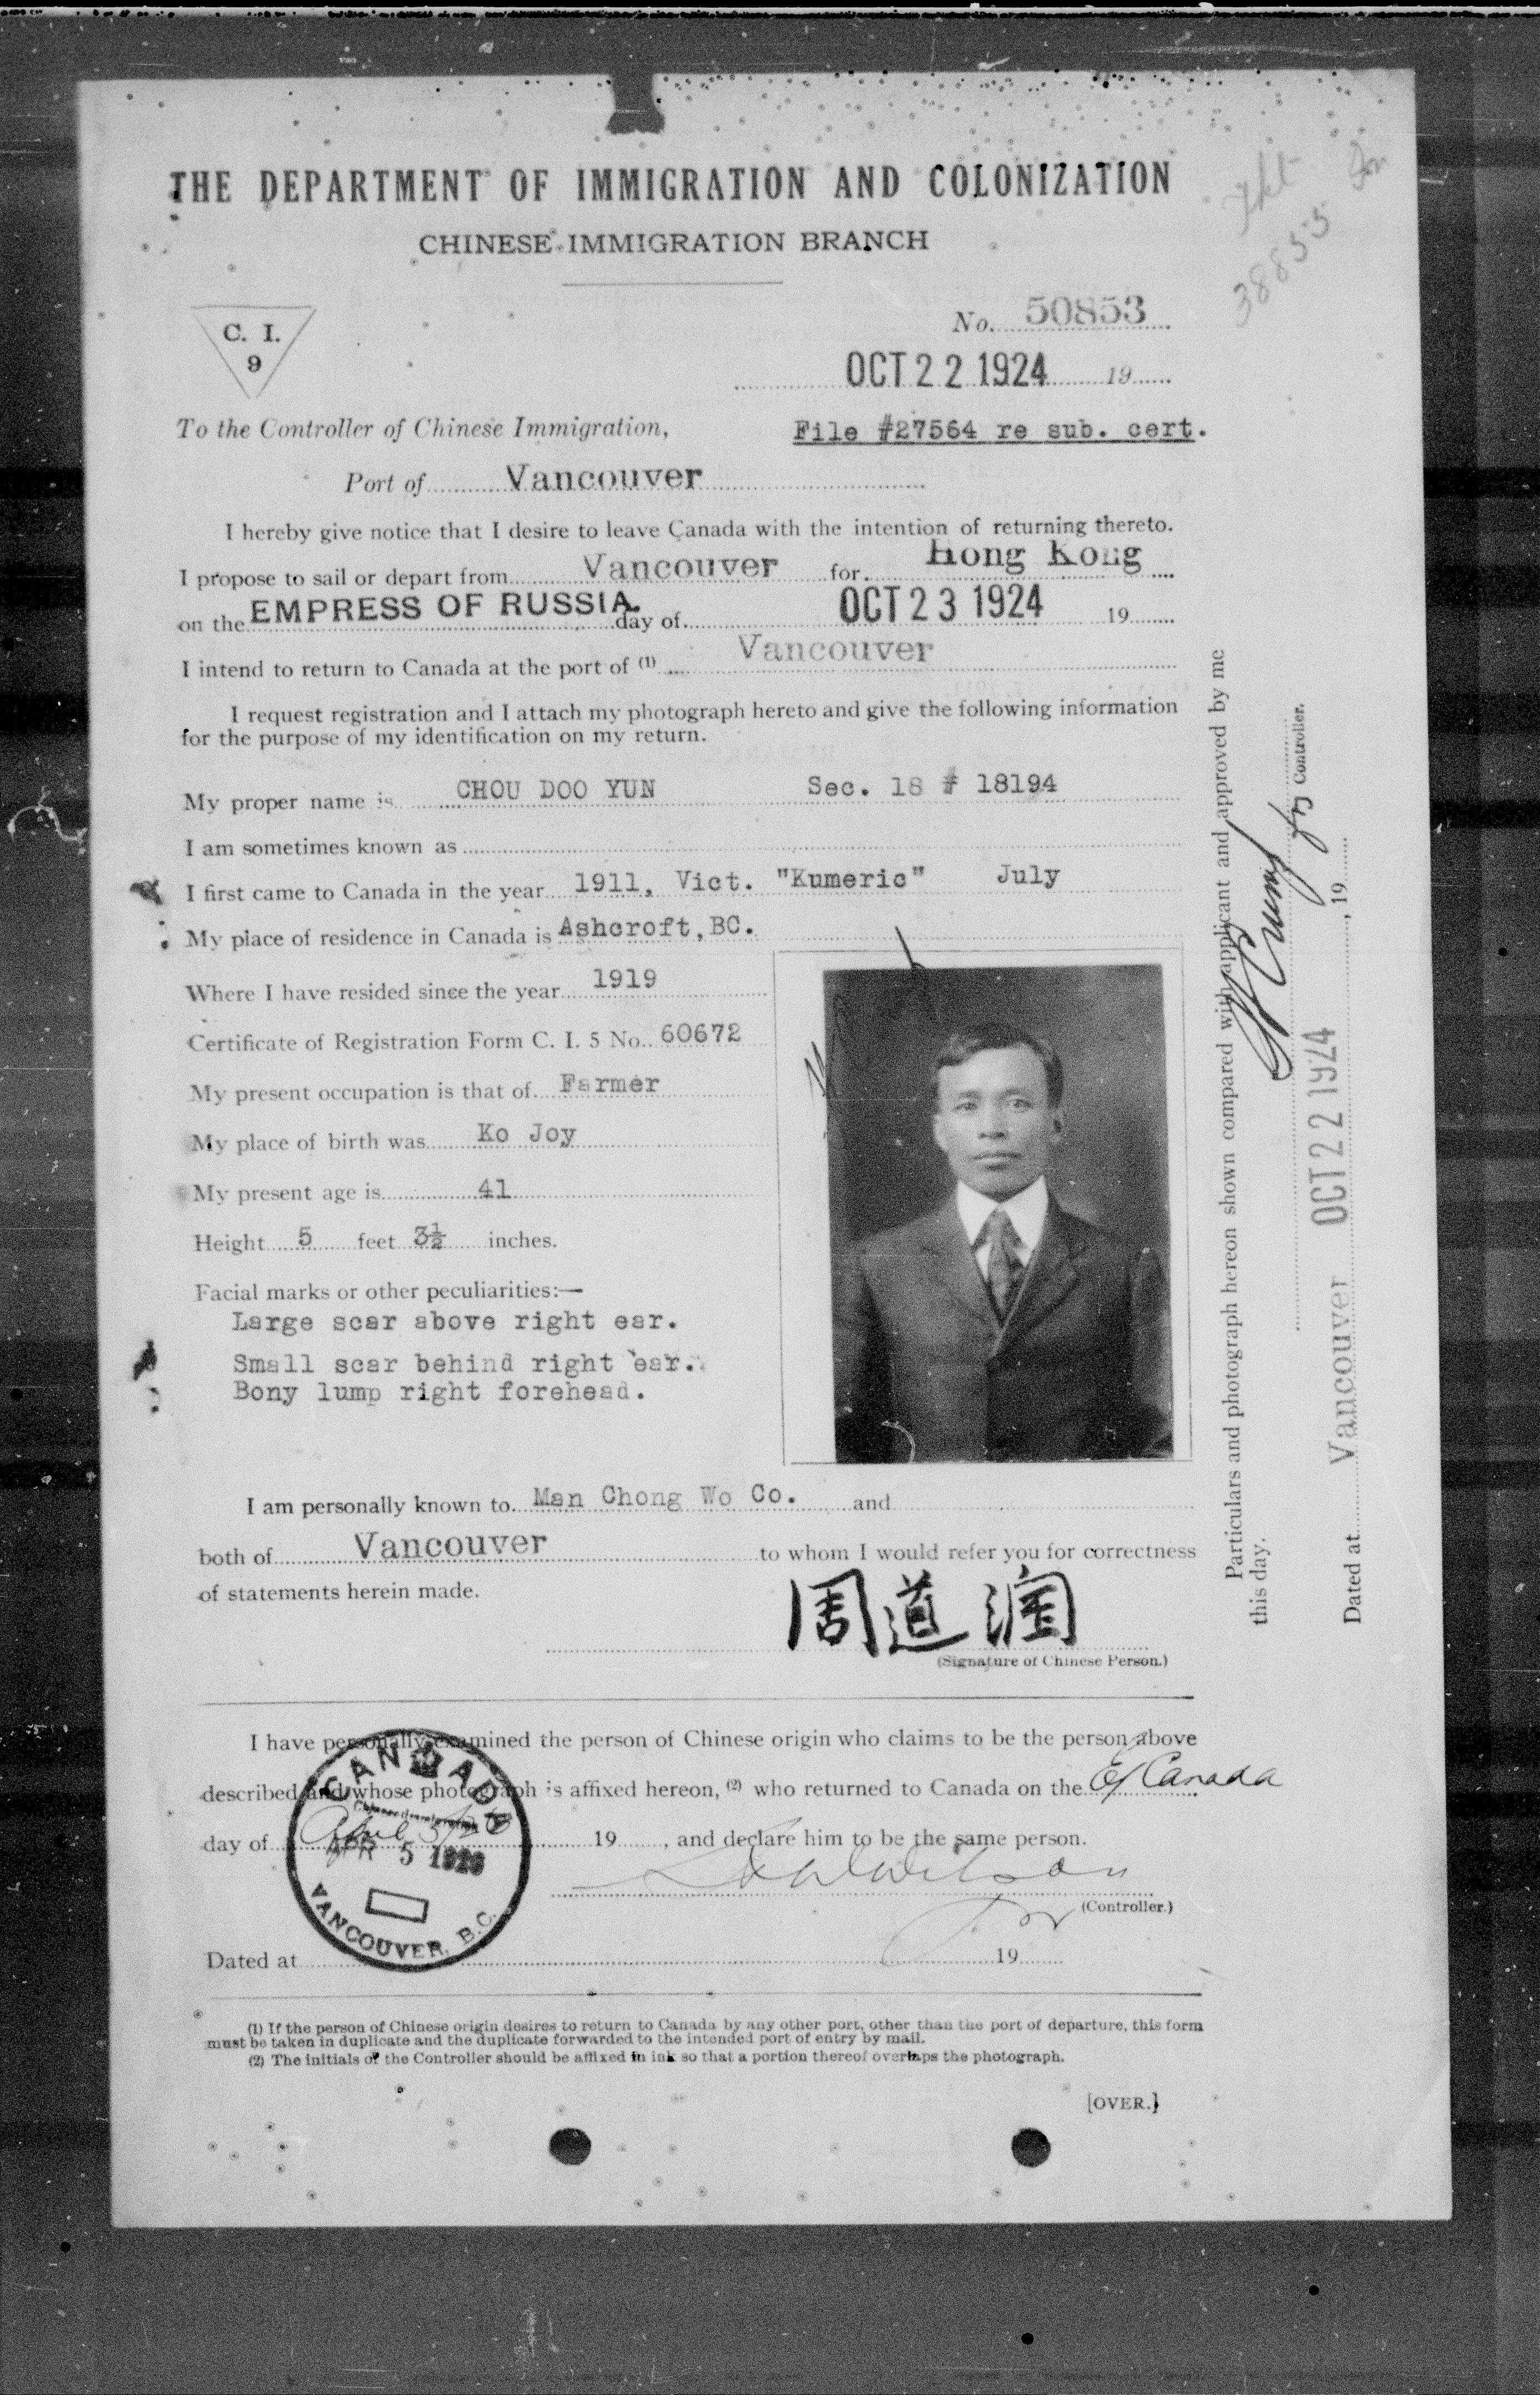 THE DEPARTMENT OF IMMIGRATION AND COLONIZATION
CHINESE IMMIGRATION BRANCH
38855
C. I.
9
No. 50853
OCT 22 1924 19
To the Controller of Chinese Immigration,
File #27564 re sub. cert.
Port of Vancouver
I hereby give notice that I desire to leave Canada with the intention of returning thereto.
I propose to sail or depart from Vancouver for Hong Kong
on the EMPRESS OF RUSSIA day of OCT 23 1924 19
I intend to return to Canada at the port of (1) Vancouver
I request registration and I attach my photograph hereto and give the following information
for the purpose of my identification on my return.
My proper name is CHOU DOO YUN Sec. 18 # 18194
I am sometimes known as
I first came to Canada in the year 1911, Vict. "Kumeric" July
My place of residence in Canada is Ashcroft, BC.
Where I have resided since the year 1919
Certificate of Registration Form C. I. 5 No. 60672
My present occupation is that of Farmer
My place of birth was Ko Joy
My present age is 41
Height 5 feet 3½ inches.
Facial marks or other peculiarities:—
Large scar above right ear.
Small scar behind right ear.
Bony lump right forehead.
I am personally known to Man Chong Wo Co. and
both of Vancouver to whom I would refer you for correctness
of statements herein made.
周道润
(Signature of Chinese Person.)
I have personally examined the person of Chinese origin who claims to be the person above
described and whose photograph is affixed hereon, (2) who returned to Canada on the Ex Canada
day of April 5 19 , and declare him to be the same person.
CANADA
Chinese Immigration
APR 5 1926
VANCOUVER, B.C.
(Controller.)
Dated at 19
(1) If the person of Chinese origin desires to return to Canada by any other port, other than the port of departure, this form
must be taken in duplicate and the duplicate forwarded to the intended port of entry by mail.
(2) The initials of the Controller should be affixed in ink so that a portion thereof overlaps the photograph.
[OVER.]
Particulars and photograph hereon shown compared with applicant and approved by me
this day.
Controller.
Dated at Vancouver OCT 22 1924 , 19